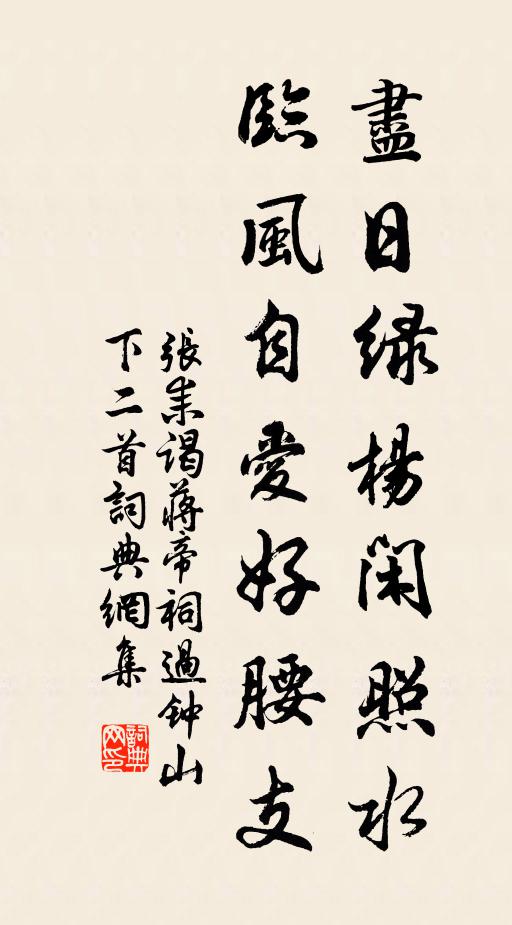 盡日緑楊閑照水
臨風自愛好腰支
張耒謁蔣帝祠過钟山
下二首詞典網集
詞典网印